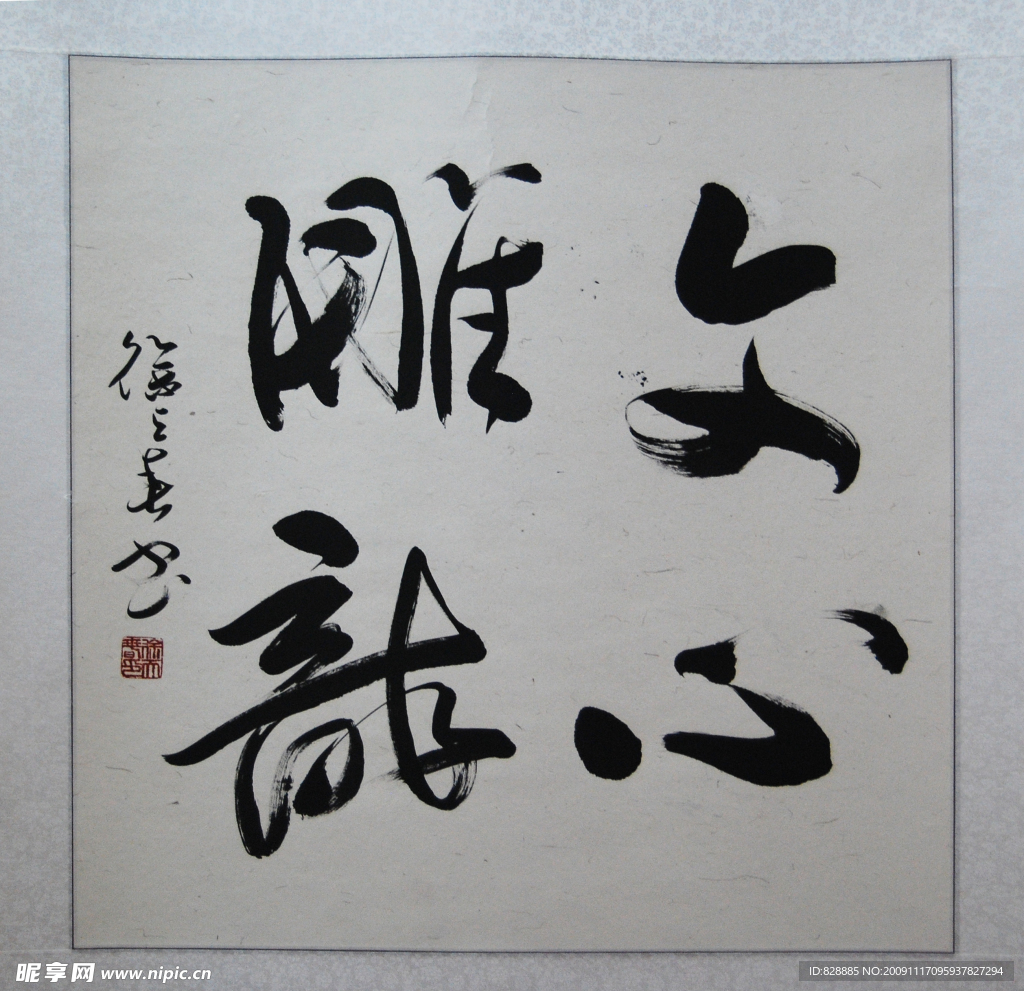 文心
雕龍
书
昵享网 www.nipic.cn
ID:828885 NO:20091117095937827294